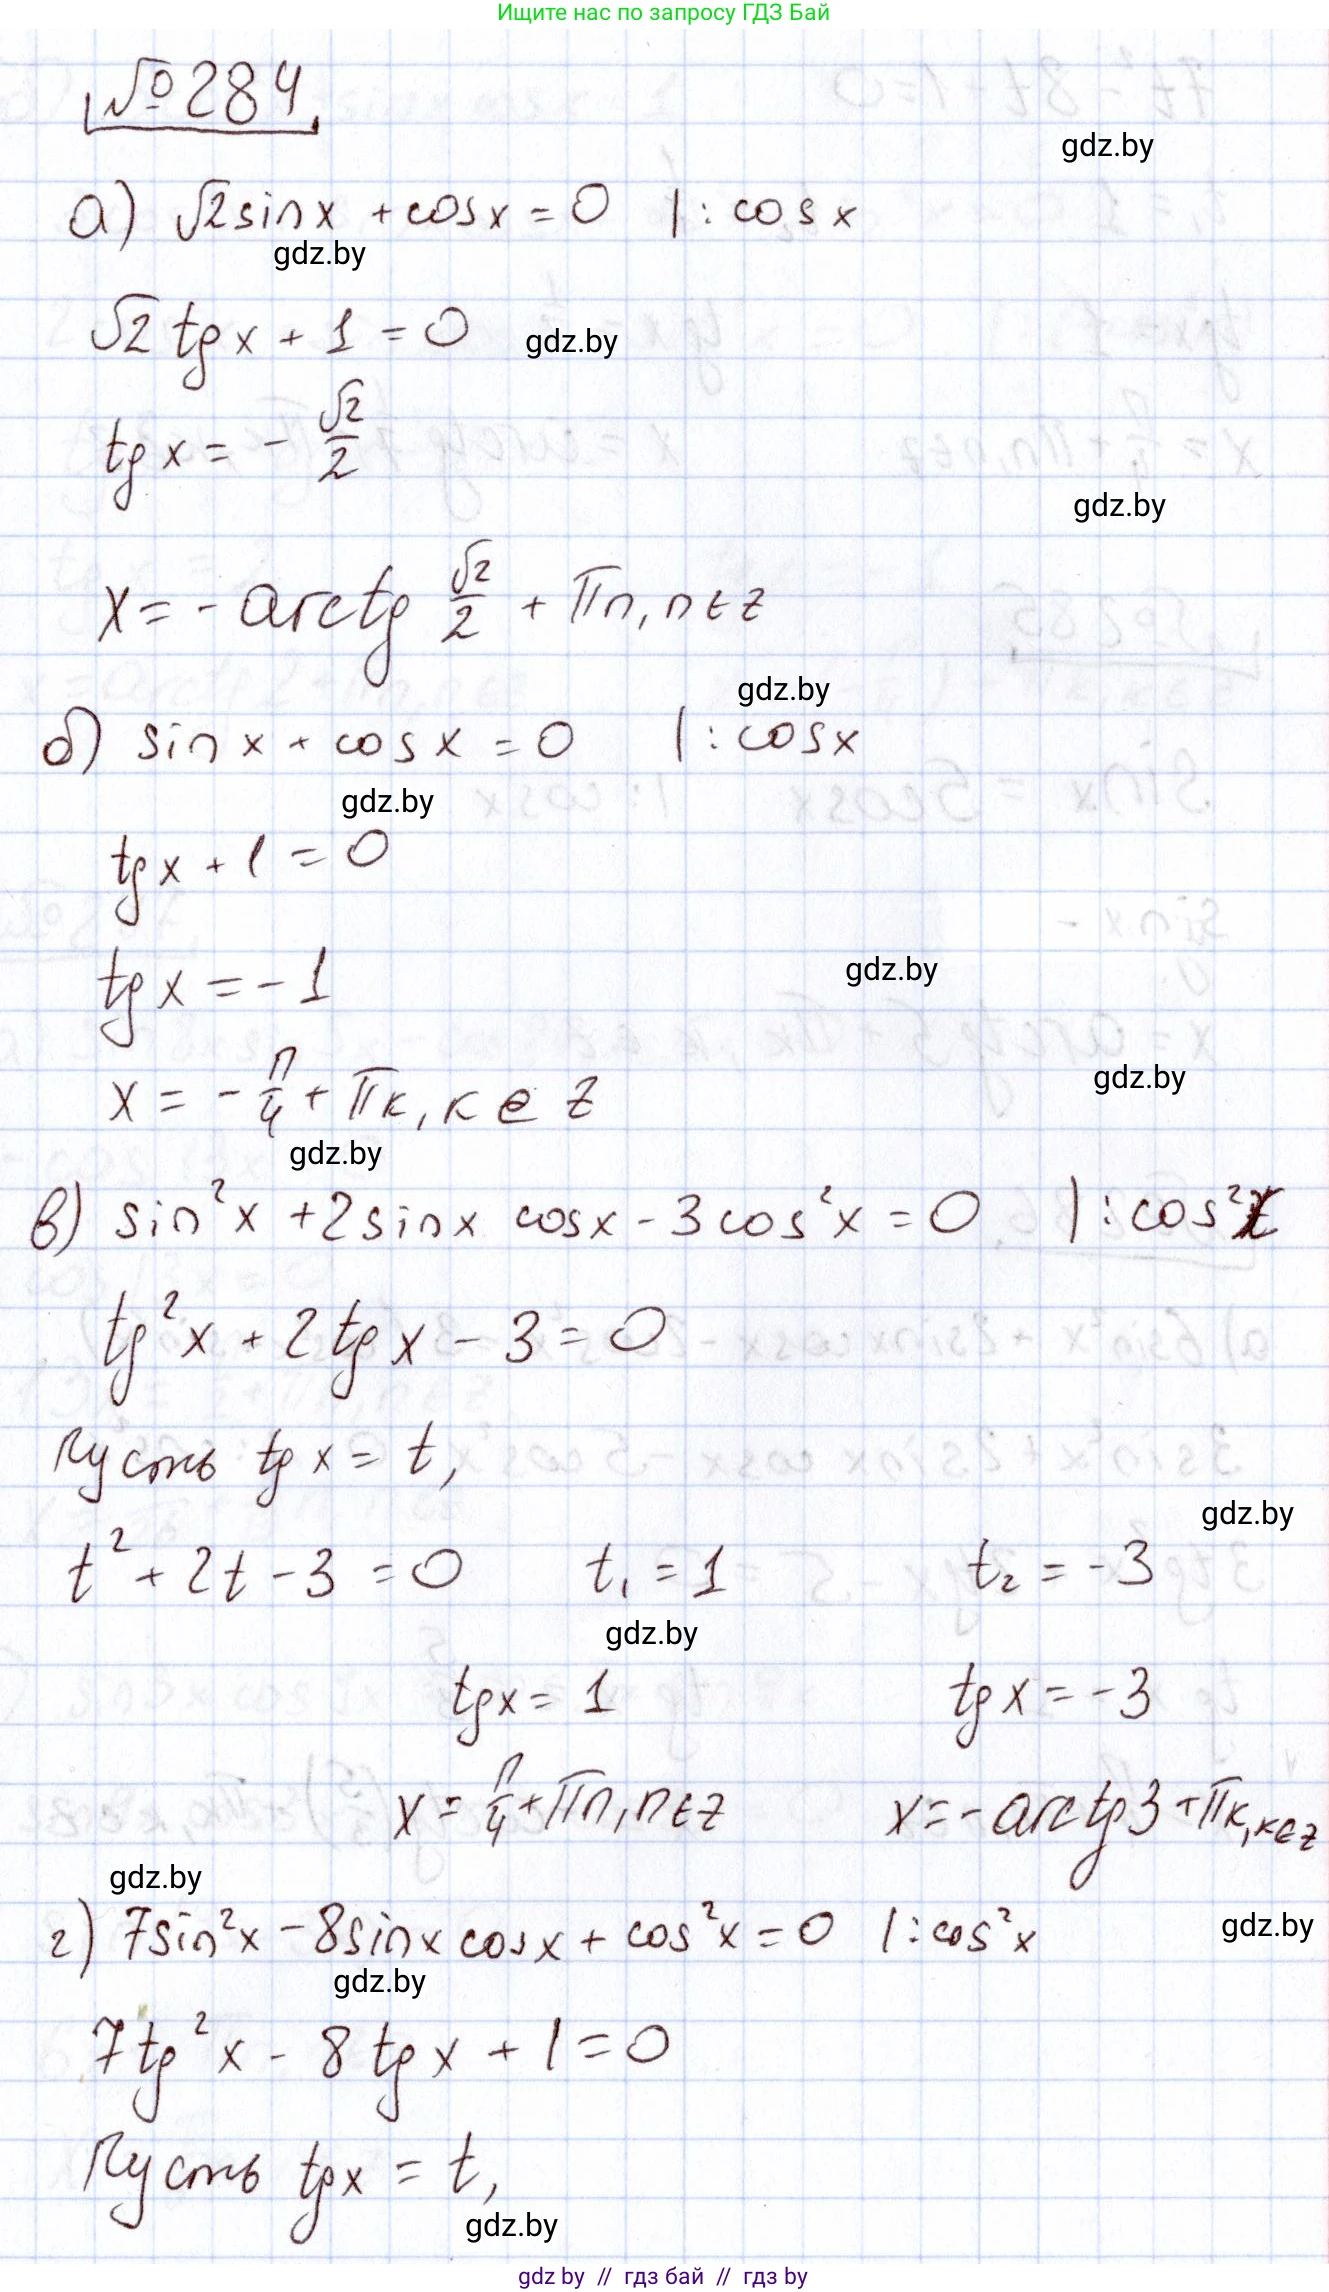 Ищите нас по запросу ГДЗ Бай
№284
gdz.by
а) √2sinx + cosx = 0 |: cosx
gdz.by
√2 tgx + 1 = 0
gdz.by
tgx = - √2/2
gdz.by
x = - arctg √2/2 + πn, n∈z
gdz.by
б) sinx + cosx = 0 |: cosx
gdz.by
tgx + 1 = 0
gdz.by
tgx = -1
gdz.by
x = - π/4 + πk, k∈Z
gdz.by
в) sin²x + 2sinx cosx - 3cos²x = 0 |: cos²x
tg²x + 2tgx - 3 = 0
Пусть tgx = t,
gdz.by
t² + 2t - 3 = 0 t₁ = 1 t₂ = -3
gdz.by
tgx = 1 tgx = -3
x = π/4 + πn, n∈z x = -arctg3 + πk, k∈z
gdz.by
г) 7sin²x - 8sinx cosx + cos²x = 0 |: cos²x
gdz.by
gdz.by
7tg²x - 8tgx + 1 = 0
Пусть tgx = t,
gdz.by
gdz by // гдз бай // гдз by